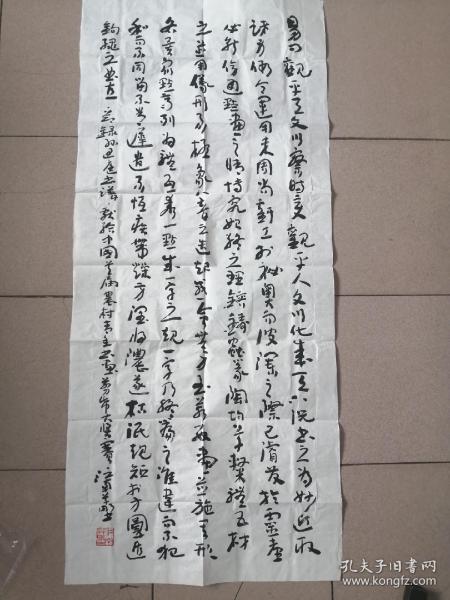 易曰觀乎天文以察時變觀乎人文以化成天下況書之為妙近取
諸身假令運用未周尚虧工於秘奧而波瀾之際已濬發於靈臺
必能傍通點畫之情博究始終之理鎔鑄蟲篆陶均草隸體五材
之並用儀形不極象八音之迭起感會無方至若數畫並施其形
各異眾點齊列為體互乖一點成一字之規一字乃終篇之準違而不犯
和而不同留不常遲遣不恆疾帶燥方潤將濃遂枯泯規矩於方圓遁
鉤繩之曲直 錄孫過庭書譜 獻給中國首屆農村青年書畫大獎賽
孔夫子旧书网